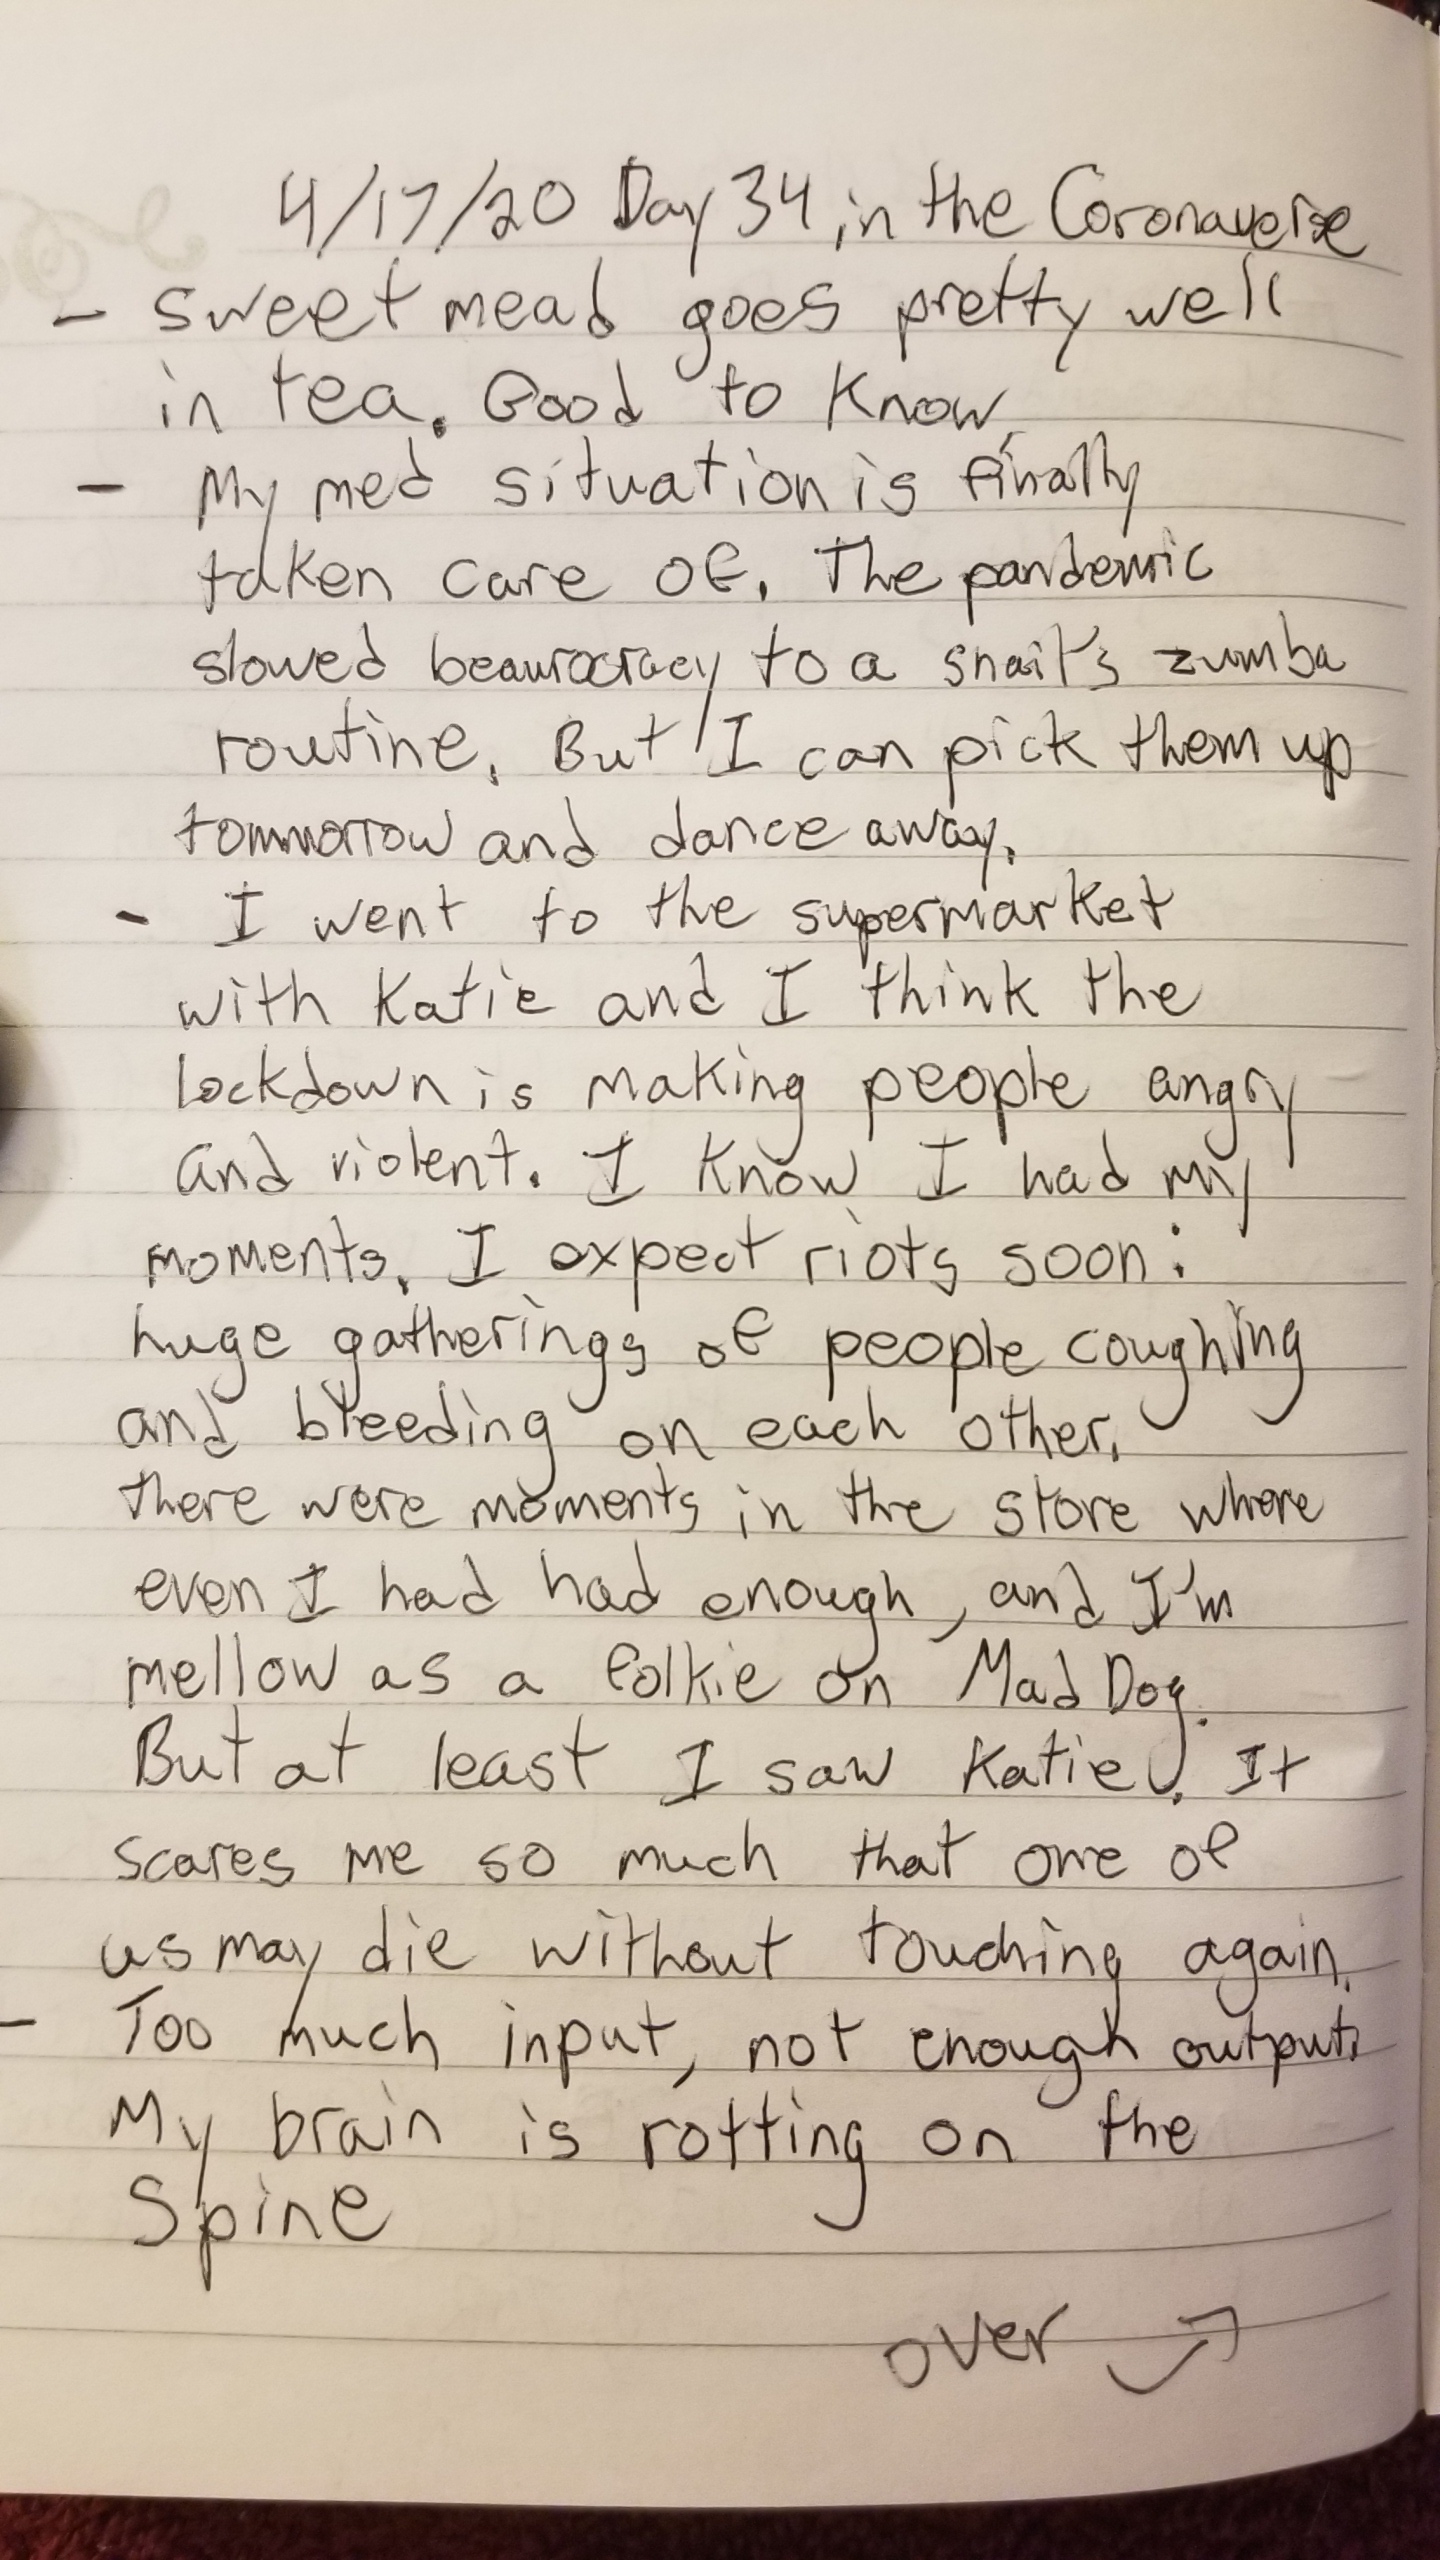 4/17/20 Day 34 in the Coronaverse
- sweet mead goes pretty well
in tea. Good to know.
- My med situation is finally
taken care of. The pandemic
slowed beaurocracy to a snail's zumba
routine. But I can pick them up
tommorrow and dance away.
- I went to the supermarket
with Katie and I think the
lockdown is making people angry
and violent. I know I had my
moments. I expect riots soon:
huge gatherings of people coughing
and bleeding on each other.
there were moments in the store where
even I had had enough, and I'm
mellow as a folkie on Mad Dog.
But at least I saw Katie. It
scares me so much that one of
us may die without touching again.
- Too much input, not enough output.
My brain is rotting on the
Spine
over ⤴